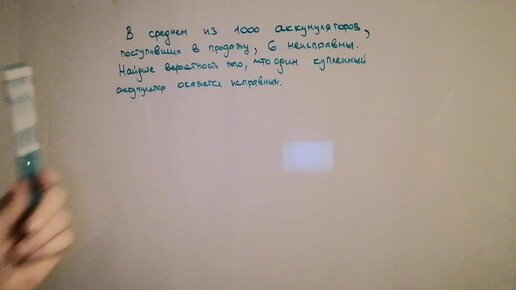 В среднем из 1000 аккумуляторов,
поступивших в продажу, 6 неисправны.
Найдите вероятность того, что один купленный
аккумулятор окажется исправным.